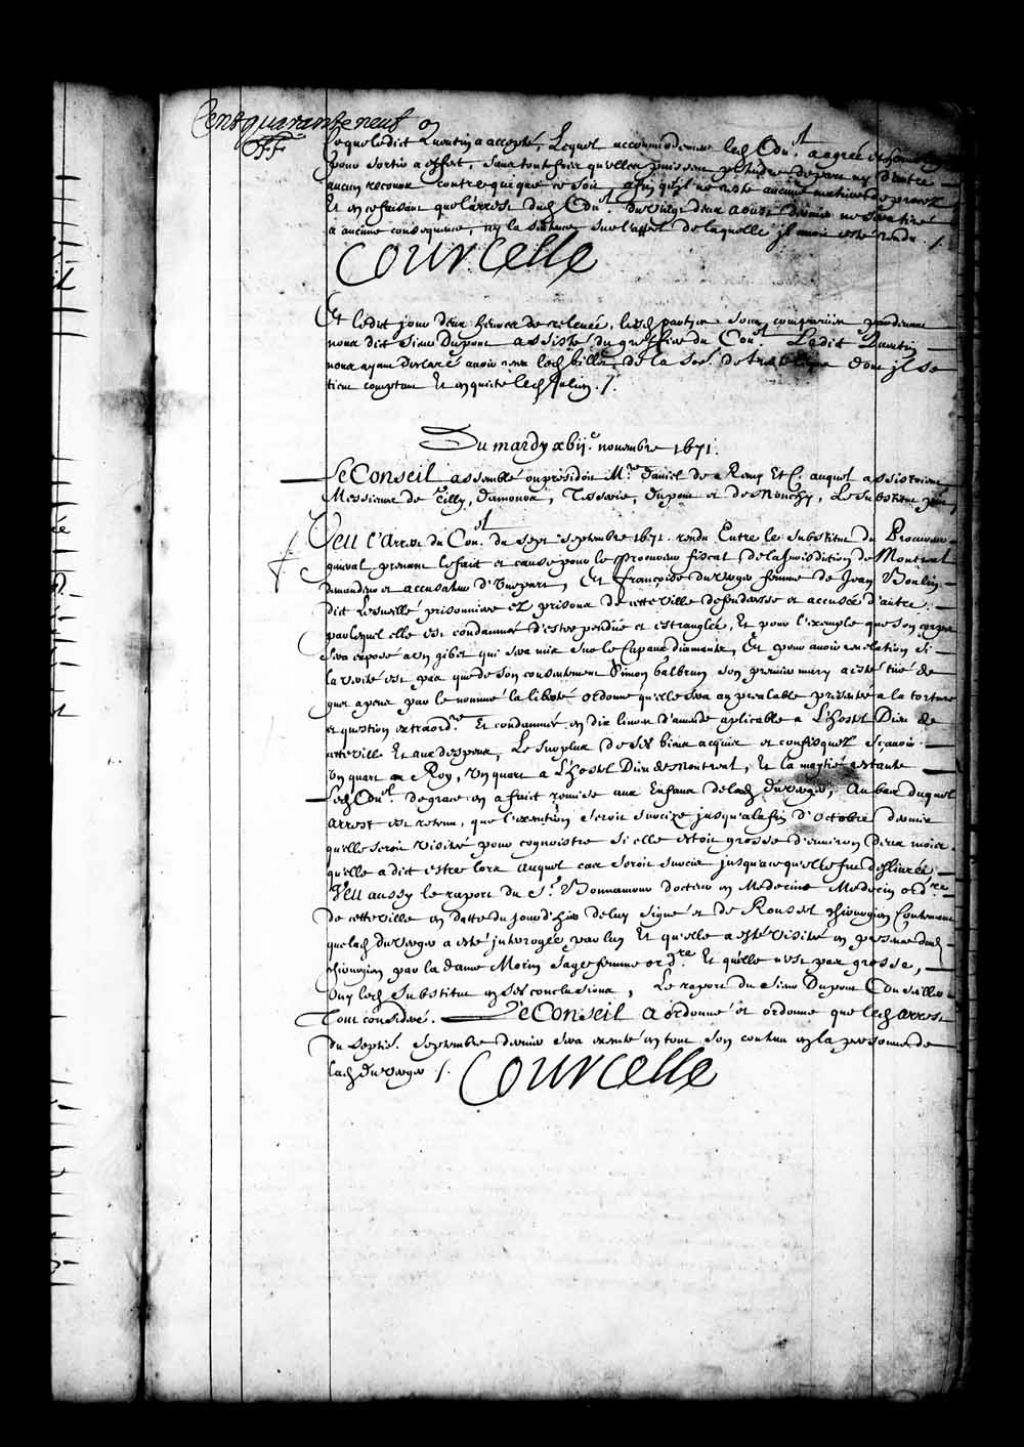 Cent quarante neuf
ce que ledict Quentin a accepté, Lequel accommodement led. Con.el a agréé et
pour sortir a effect, sans toutefois quelles puissent pretendre depens ny d'entre
aucun recours contre qui que ce soit, afin qu'il ne reste aucune matiere de procez
Et en ce faisant que l'arrest dud. Con.el du vingt deux Aoust dernier ne sera tiré
a aucune consequence, ny la sentence sur l'appel de laquelle jl avoit esté rendu ./.
Courcelle
Et ledit jour deux heures de relevée, lesd. parties sont comparües pardevant
nous dit Sieur Dupont assisté du greffier du Con.el Ledit Quentin
nous ayant declaré avoir receu lesd. billets de la So.té de dont jl se
tient comptant Et en quitte led. ./.
Du mardy xbij.e novembre 1671.
Le Conseil assemblé ou presidoit M.re Daniel de Remy Et C. auquel assistoient
Messieurs de Tilly, Damours, Tesserie, Dupont et de Mouchy, Le Substitut
Veu l'Arrest du Con.el du sept.e Septembre 1671. rendu Entre le substitut du Procureur
gn̄eral prenant le fait et cause pour le Procureur fiscal de la Jurisdiction de Montreal
demandeur et accusateur d'Une part, Et Françoise Duverger femme de Jean Boulin
dict prisonniere ez prisons de cette ville defenderesse et accusée d'autre.
par lequel elle est condamnée d'estre pendüe et estranglée, Et pour l'exemple que son corps
sera exposé a un gibet qui sera mis sur le Cap aux diamants, Et pour avoir revelation si
la verité est pas que de son consentement Simon Galbrun son premier mary a esté tiré de
guet apens par le nommé la liberté ordonné qu'elle sera au prealable presentée a la torture
et question extraord.re Et condamnée en dix livres d'amende aplicable a L'hostel Dieu de
cette ville Et aux despens, Le surplus de ses biens acquis et confisquez sçavoir
Un quart au Roy, Un quart a L'hostel Dieu de Montreal, Et la moytié restante
led. Con.el de grace en a fait remise aux Enfans de lad. Duverger, Au bas duquel
Arrest est retenu, que l'execution seroit surcize jusqu'a la fin d'Octobre dernier
qu'elle seroit visitée pour cognoistre si elle estoit grosse d'environ deux mois
qu'elle a dict estre lors auquel cas seroit surcis jusqu'a ce qu'elle fut deslivrée
Veu aussy le raport du S.r Bonnamour docteur en Medecine Medecin ord.re
de cette ville en datte du jour d'hier de luy signé et de Roussel chirurgien Contenant
que lad. Duverger a esté jnterogée par luy Et qu'elle a esté visitée en presence dud.
chirurgien par la dame Morin sage femme ord.re Et qu'elle n'est pas grosse,
Ouy led. Substitut en ses conclusions, Le raport du sieur Dupont Conseiller
Tout consideré. Le Conseil a ordonné et ordonne que led. arrest
du sept.e Septembre dernier sera executé en tout son contenu en la personne de
lad. Duverger ./. Courcelle